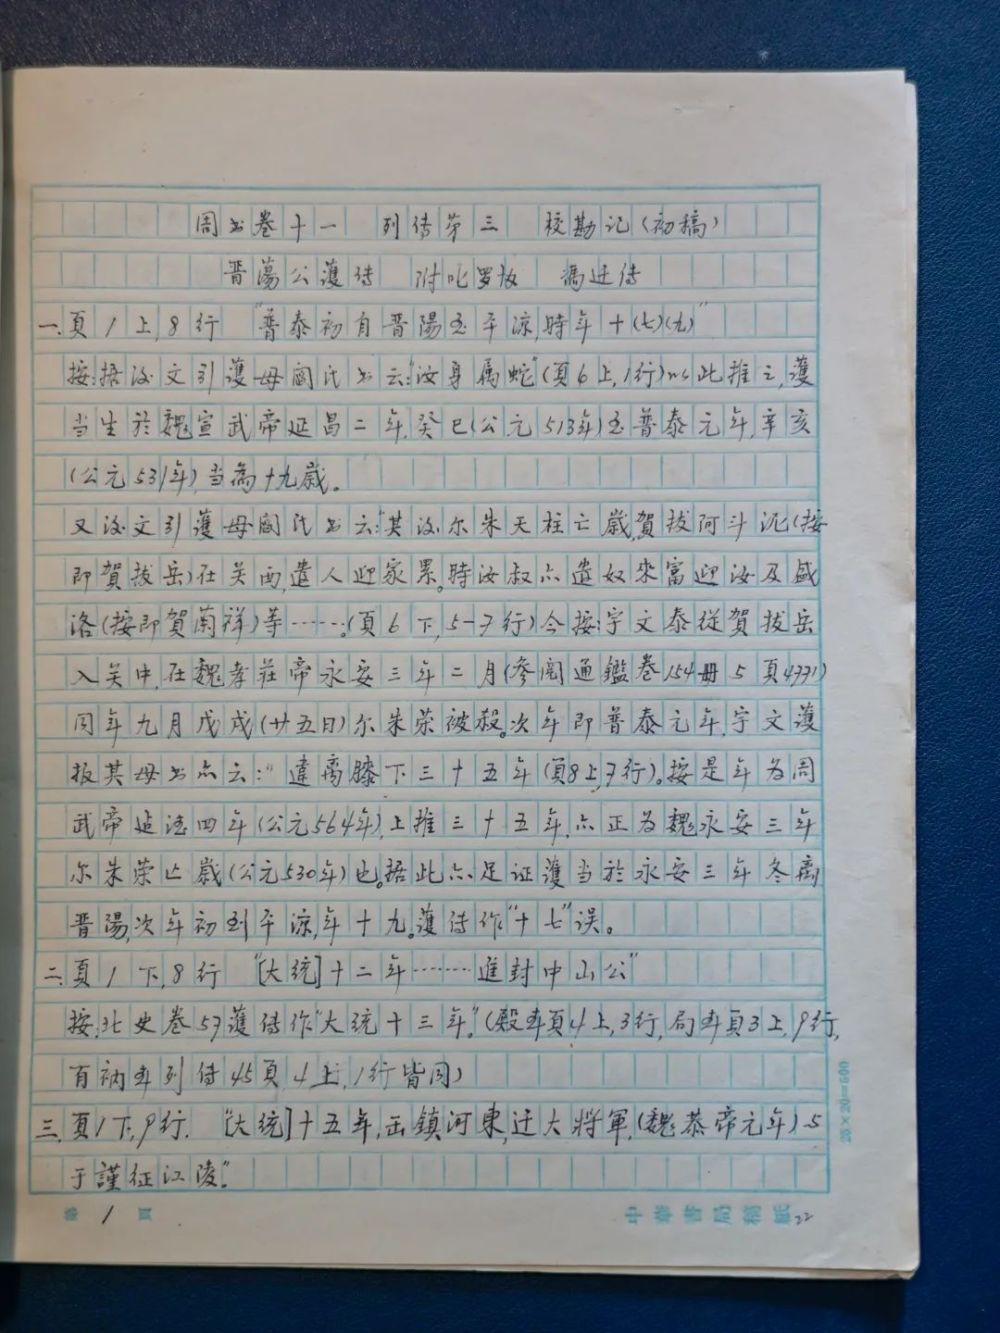 周书卷十一 列传第三 校勘记(初稿)
晋蕩公護传 附叱罗协 馮迁传
一、頁1上,8行 "普泰初自晋陽至平凉,時年十(七)(九)"
按:据後文引護母阎氏书云:"汝身属蛇"(頁6上,1行)以此推之,護
当生於魏宣武帝延昌二年,癸巳(公元513年)至普泰元年,辛亥
(公元531年),当為十九歲。
又後文引護母阎氏书云:"其後尔朱天柱亡歲,賀拔阿斗泥(按
即賀拔岳)在关西,遣人迎家累。時汝叔亦遣奴來富迎汝及盛
洛(按即賀蘭祥)等……。(頁6下,5-7行)今按:宇文泰從賀拔岳
入关中,在魏孝莊帝永安三年二月(参阅通鑑卷154册5頁4771)
同年九月戊戌(廿五日)尔朱荣被殺。次年即普泰元年,宇文護
报其母书亦云:"違离膝下三十五年(頁8上,7行)。按是年為周
武帝保定四年(公元564年),上推三十五年,亦正為魏永安三年
尔朱荣亡歲(公元530年)也。据此亦足证護当於永安三年冬离
晋陽,次年初到平凉,年十九。護传作"十七"误。
二、頁1下,8行 "[大统]十二年……進封中山公"
按:北史卷57護传作"大统十三年。"(殿本頁4上,3行,局本頁3上,9行,
百衲本列传45頁4上,1行皆同)
三、頁1下,9行. "[大统]十五年,出镇河東,迁大将軍,(魏恭帝元年)与
于謹征江陵."
第 1 頁 中華書局稿紙 22
25×20=500